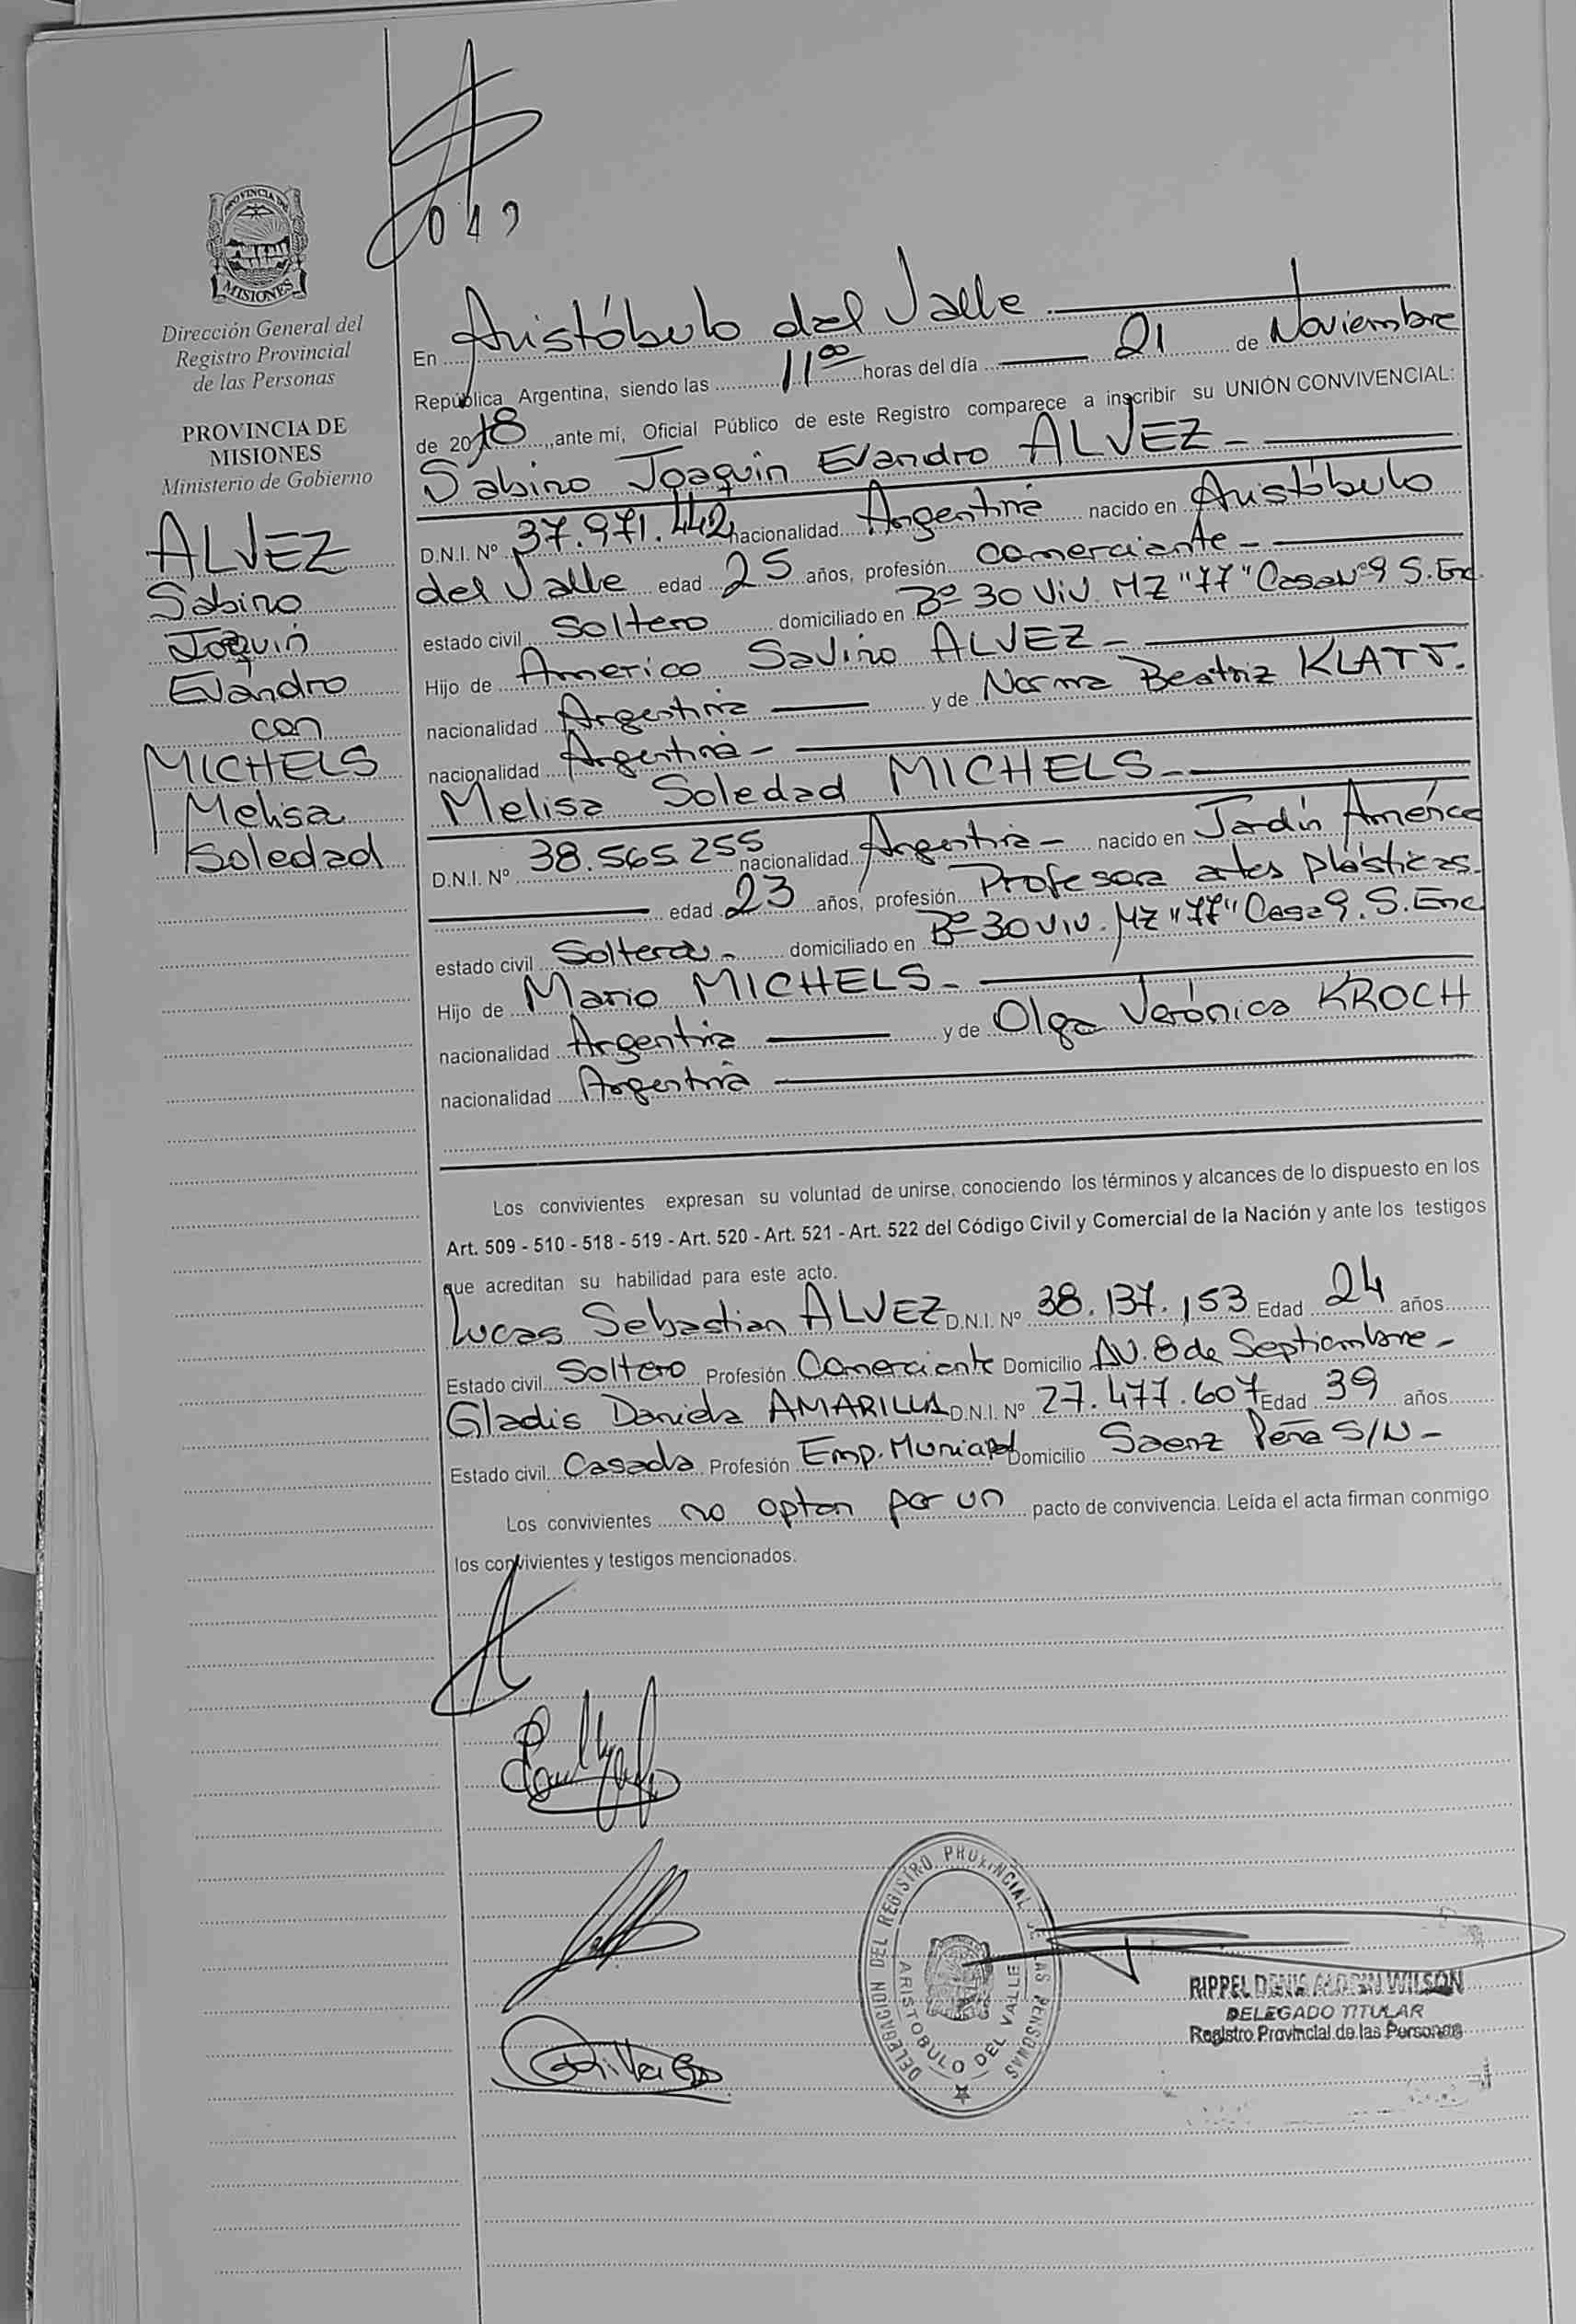 PROVINCIA DE
MISIONES
Dirección General del
Registro Provincial
de las Personas
PROVINCIA DE
MISIONES
Ministerio de Gobierno
ALVEZ
Sabino
Joaquin
Evandro
con
MICHELS
Melisa
Soledad
En Aristóbulo del Valle
República Argentina, siendo las 11⁰⁰ horas del día 21 de Noviembre
de 2018, ante mí, Oficial Público de este Registro comparece a inscribir su UNIÓN CONVIVENCIAL:
Sabino Joaquin Evandro ALVEZ -
D.N.I. Nº 37.971.442 nacionalidad Argentina nacido en Aristóbulo
del Valle edad 25 años, profesión comerciante -
estado civil Soltero domiciliado en Bº 30 Viv. MZ "77" Casa Nº 9 S. Enc.
Hijo de Americo Savino ALVEZ -
nacionalidad Argentina y de Norma Beatriz KLATT.
nacionalidad Argentina -
Melisa Soledad MICHELS -
D.N.I. Nº 38.565.255 nacionalidad Argentina - nacido en Jardín América
edad 23 años, profesión Profesora artes plásticas.
estado civil Soltera - domiciliado en Bº 30 Viv. MZ "77" Casa 9. S. Enc
Hijo de Mario MICHELS -
nacionalidad Argentina y de Olga Verónica KROCH
nacionalidad Argentina
Los convivientes expresan su voluntad de unirse, conociendo los términos y alcances de lo dispuesto en los
Art. 509 - 510 - 518 - 519 - Art. 520 - Art. 521 - Art. 522 del Código Civil y Comercial de la Nación y ante los testigos
que acreditan su habilidad para este acto.
Lucas Sebastian ALVEZ D.N.I. Nº 38.137.153 Edad 24 años
Estado civil Soltero Profesión Comerciante Domicilio AV. 8 de Septiembre -
Gladis Daniela AMARILLA D.N.I. Nº 27.477.607 Edad 39 años
Estado civil Casada Profesión Emp. Municipal Domicilio Saenz Peña S/N -
Los convivientes no optan por un pacto de convivencia. Leída el acta firman conmigo
los convivientes y testigos mencionados.
DELEGACION DEL REGISTRO PROVINCIAL DE LAS PERSONAS
ARISTOBULO DEL VALLE
RIPPEL DENIS WILSON
DELEGADO TITULAR
Registro Provincial de las Personas